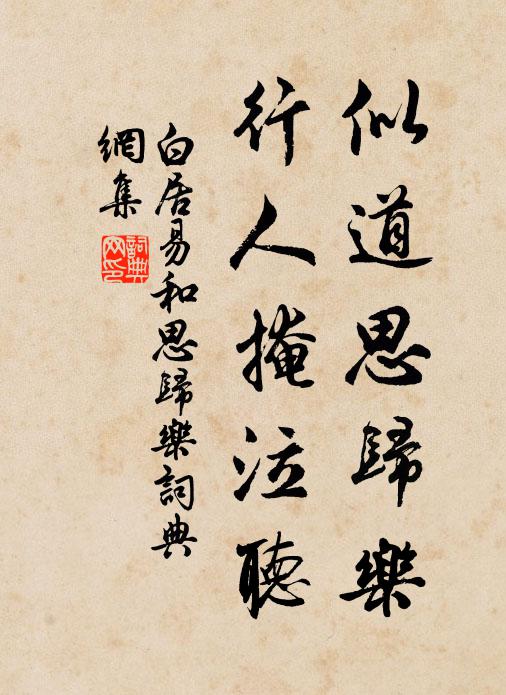 似道思歸樂
行人掩泣聽
白居易和思歸樂詞典
網集
詞典
网印